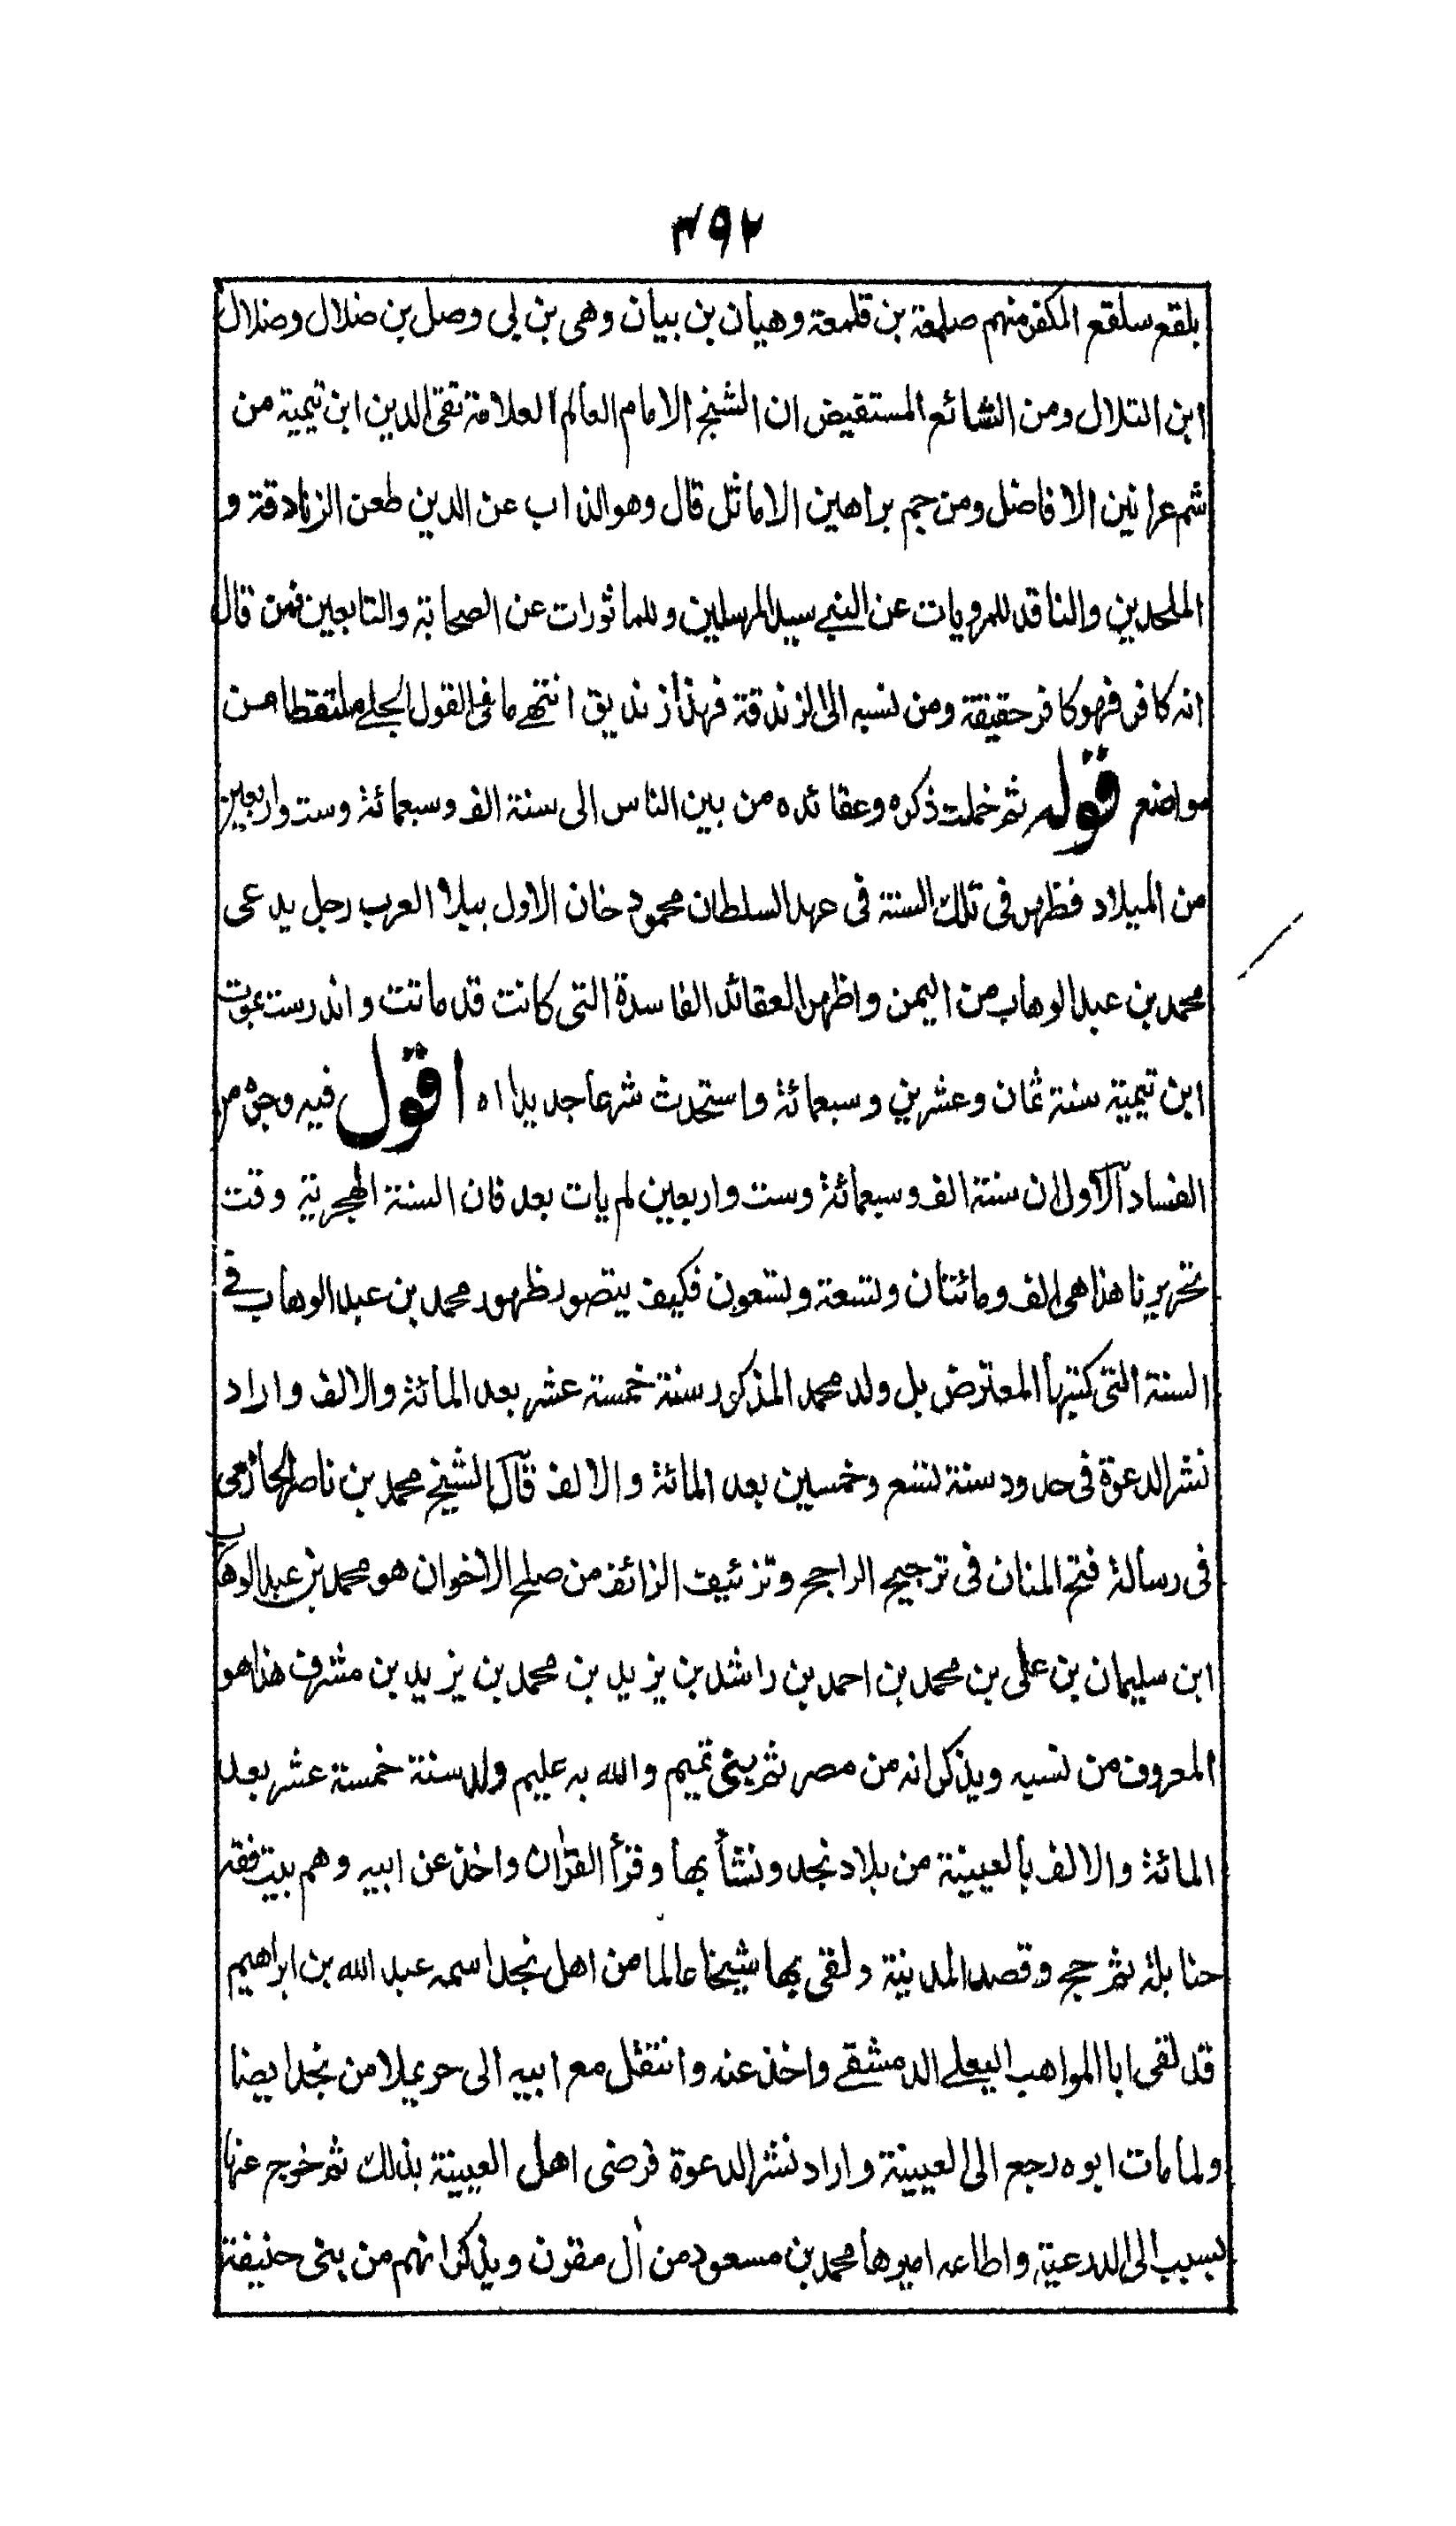 ٤٩٢
بلقع سلقع المكفر منهم صلمعة بن قلمعة وهيان بن بيان وهي بن بي وصل بن ضلال وضلال
ابن التلال ومن الشائع المستفيض ان الشيخ الامام العالم العلامة تقي الدين ابن تيمية من
شم عرانين الافاضل ومن جم براهين الاماثل قال وهو الذاب عن الدين طعن الزنادقة و
الملحدين والناقد للمرويات عن النبي سيد المرسلين وللماثورات عن الصحابة والتابعين فمن قال
انه كافر فهو كافر حقيقة ومن نسبه الى الزندقة فهذا زنديق انتهى ما في القول الجلي ملتقطا من
مواضع قوله ثم خملت ذكره وعقائده من بين الناس الى سنة الف وسبعمائة وست واربعين
من الميلاد فظهر في تلك السنة في عهد السلطان محمود خان الاول ببلاد العرب رجل يدعى
محمد بن عبد الوهاب من اليمن واظهر العقائد الفاسدة التي كانت قد ماتت واندرست بموت
ابن تيمية سنة ثمان وعشرين وسبعمائة واستحدث شرعا جديدا اه اقول فيه وجوه من
الفساد الاول ان سنة الف وسبعمائة وست واربعين لم يات بعد فان السنة الهجرية وقت
تحريرنا هذا هي الف ومائتان وتسعة وتسعون فكيف يتصور ظهور محمد بن عبد الوهاب في
السنة التي كتبها المعترض بل ولد محمد المذكور سنة خمسة عشر بعد المائة والالف واراد
نشر الدعوة في حدود سنة تسع وخمسين بعد المائة والالف قال الشيخ محمد بن ناصر الحازمي
في رسالة فتح المنان في ترجيح الراجح وتزئيف الزائف من صلح الاخوان هو محمد بن عبد الوهاب
ابن سليمان بن علي بن محمد بن احمد بن راشد بن يزيد بن محمد بن يزيد بن مشرف هذا هو
المعروف من نسبه ويذكر انه من مضر ثم بني تميم والله به عليم ولد سنة خمسة عشر بعد
المائة والالف بالعيينة من بلاد نجد ونشأ بها وقرأ القرآن واخذ عن ابيه وهم بيت فقه
حنابلة ثم حج وقصد المدينة ولقي بها شيخا عالما من اهل نجد اسمه عبد الله بن ابراهيم
قد لقي ابا المواهب البعلي الدمشقي واخذ عنه وانتقل مع ابيه الى حريملا من نجد ايضا
ولما مات ابوه رجع الى العيينة واراد نشر الدعوة فرضي اهل العيينة بذلك ثم خرج عنها
بسبب الى الدرعية واطاعه اميرها محمد بن مسعود من آل مقرن ويذكر انهم من بني حنيفة